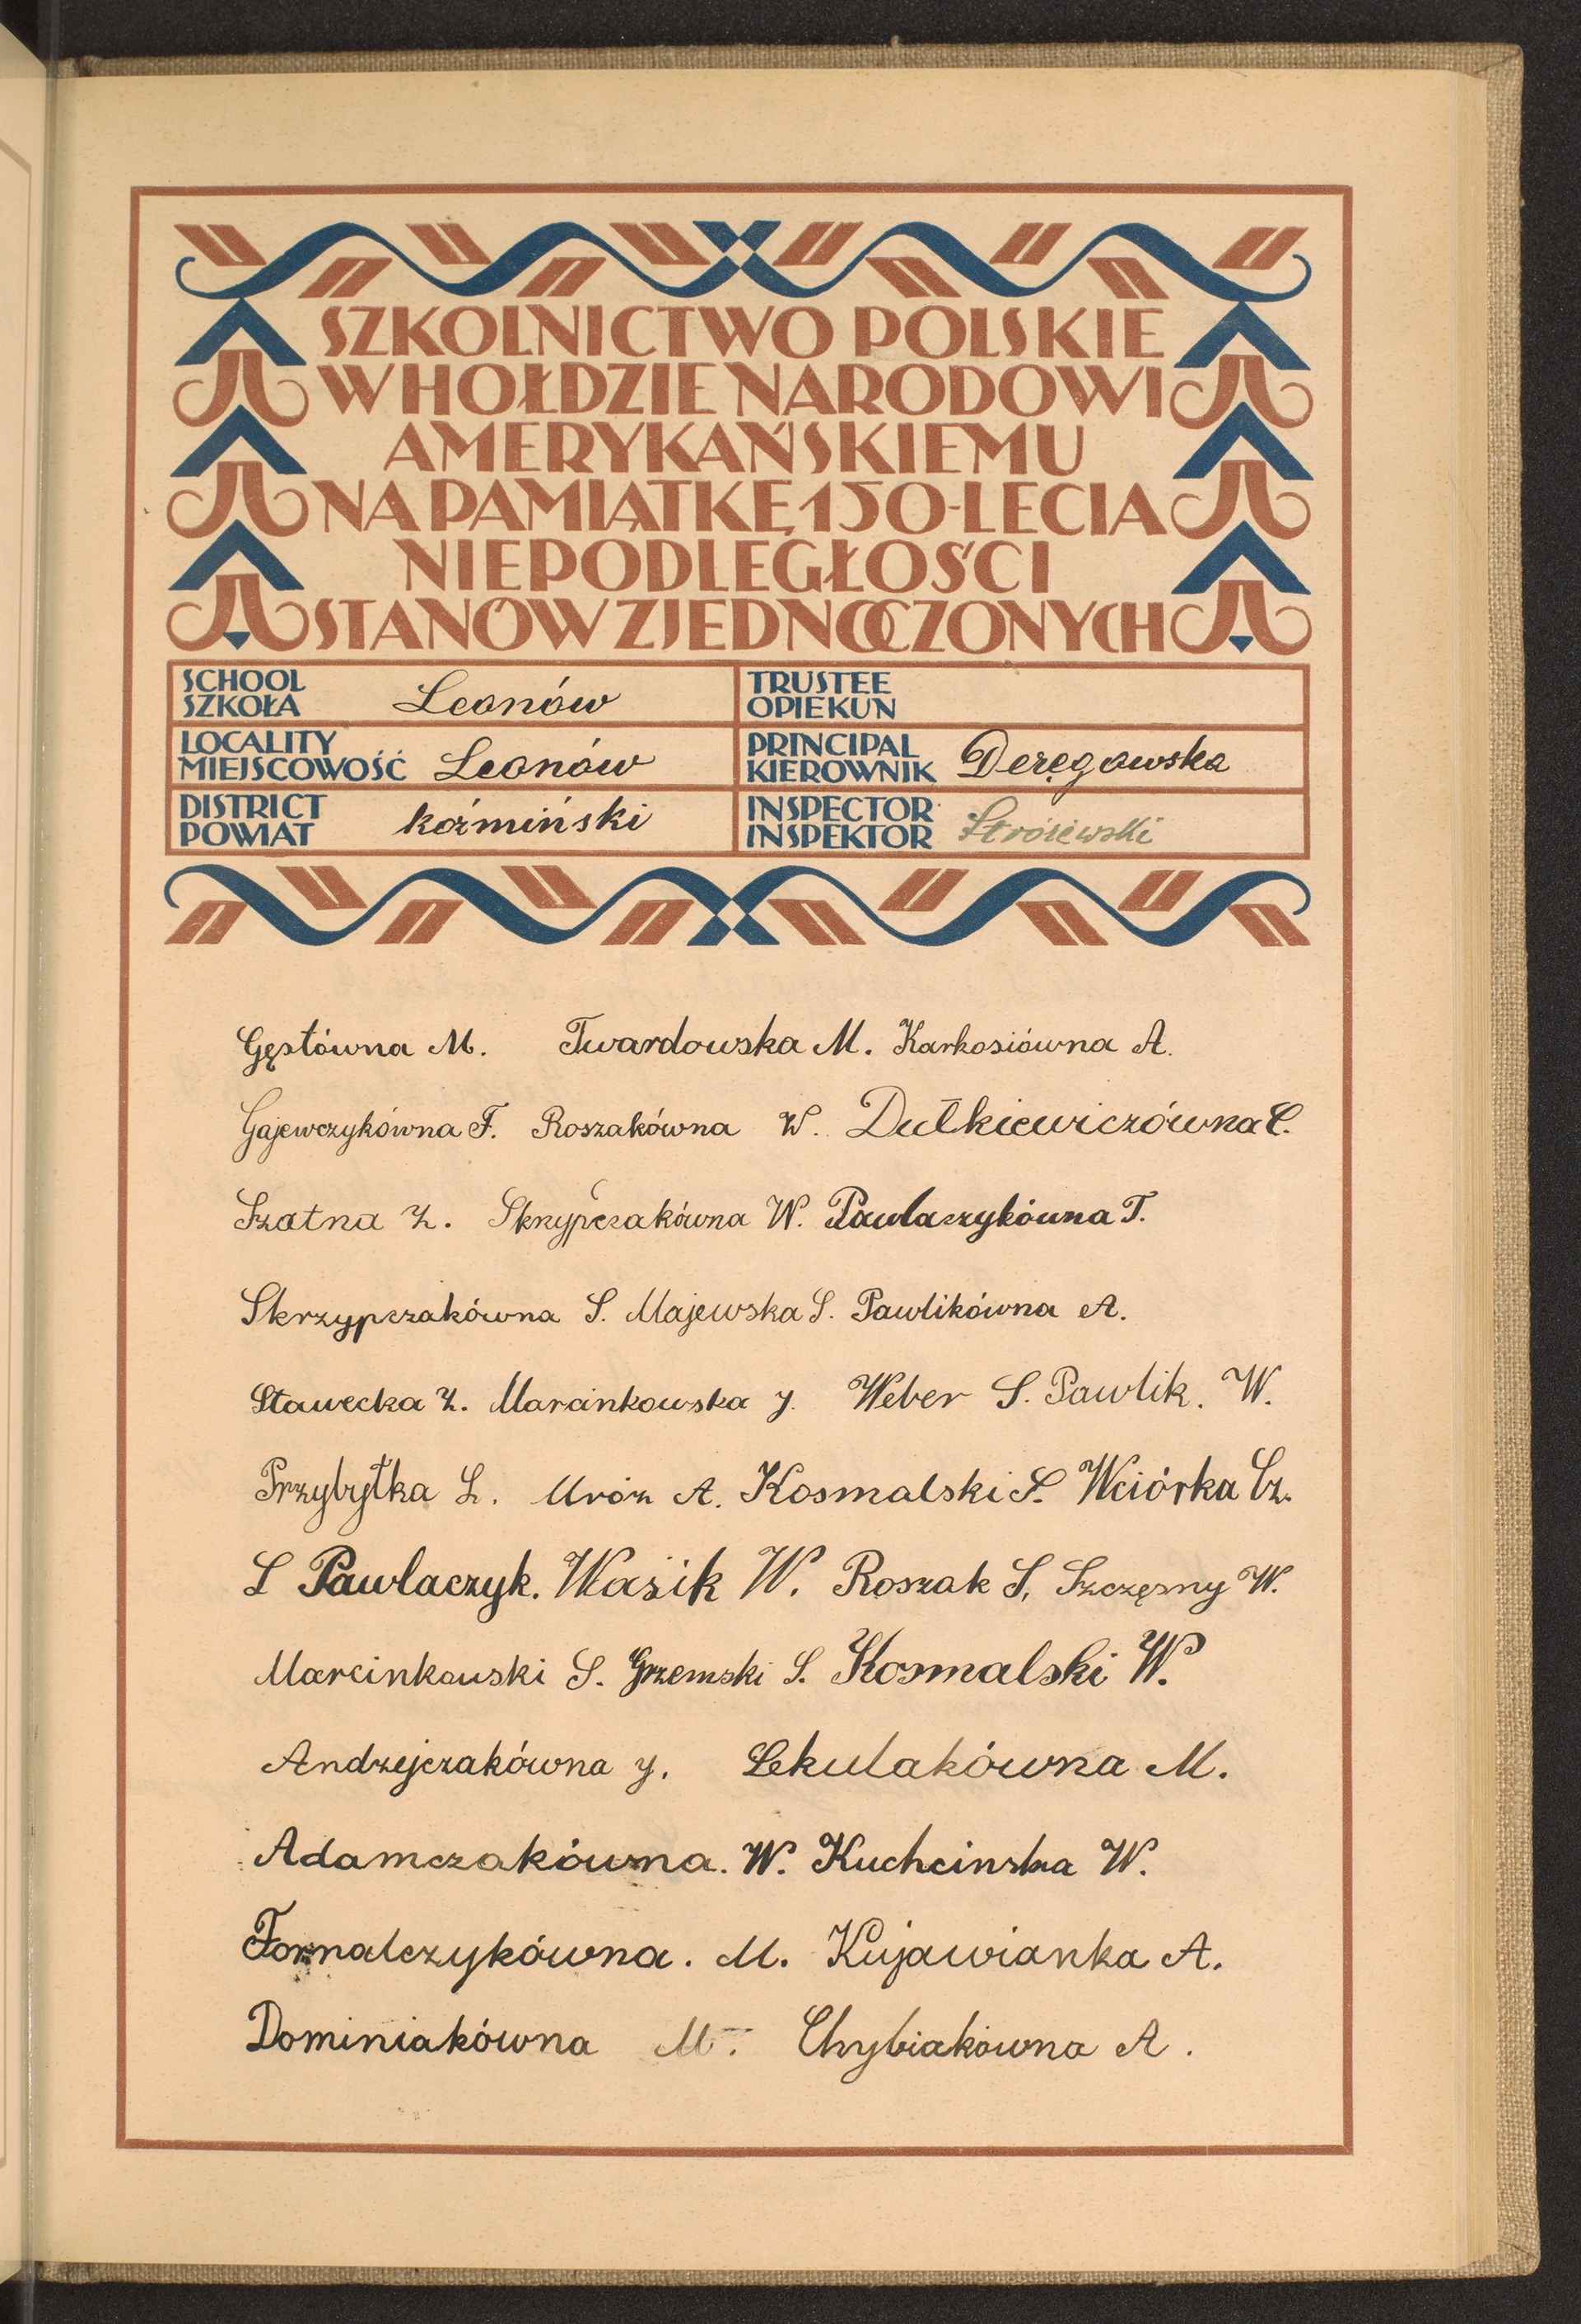 SZKOLNICTWO POLSKIE
W HOŁDZIE NARODOWI
AMERYKAŃSKIEMU
NA PAMIĄTKĘ 150-LECIA
NIEPODLEGŁOŚCI
STANÓW ZJEDNOCZONYCH
SCHOOL
SZKOŁA Leonów
TRUSTEE
OPIEKUN
LOCALITY
MIEJSCOWOŚĆ Leonów
PRINCIPAL
KIEROWNIK Deręgowska
DISTRICT
POWIAT koźmiński
INSPECTOR
INSPEKTOR Stróżewski
Gęstówna M. Twardowska M. Karkosiówna A.
Gajewczykówna F. Roszakówna W. Dutkiewiczówna C.
Szatna Z. Skrzypczakówna W. Pawlaczykówna T.
Skrzypczakówna S. Majewska S. Pawlikówna A.
Stawecka Z. Marcinkowska J. Weber S. Pawlik. W.
Przybyłka L. Mróz A. Kosmalski S. Wciórka Cz.
S Pawlaczyk. Wasik W. Roszak S. Szczęsny W.
Marcinkowski S. Grzemski S. Kosmalski W.
Andrzejczakówna J. Sekulakówna M.
Adamczakówna. W. Kuchcinska W.
Fornalczykówna. M. Kujawianka A.
Dominiakówna M. Chybiakówna A.